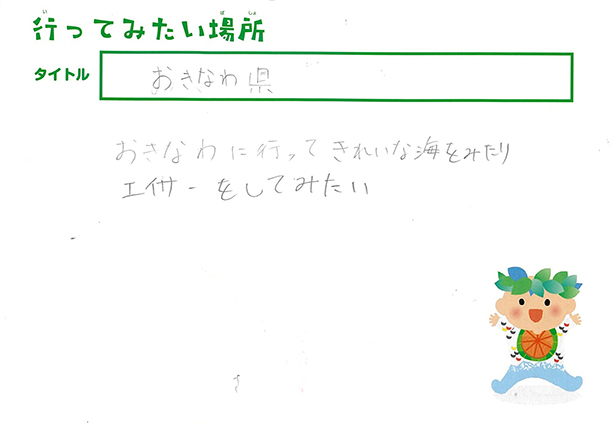 行ってみたい場所
タイトル
おきなわ県
おきなわに行ってきれいな海をみたり
エイサーをしてみたい